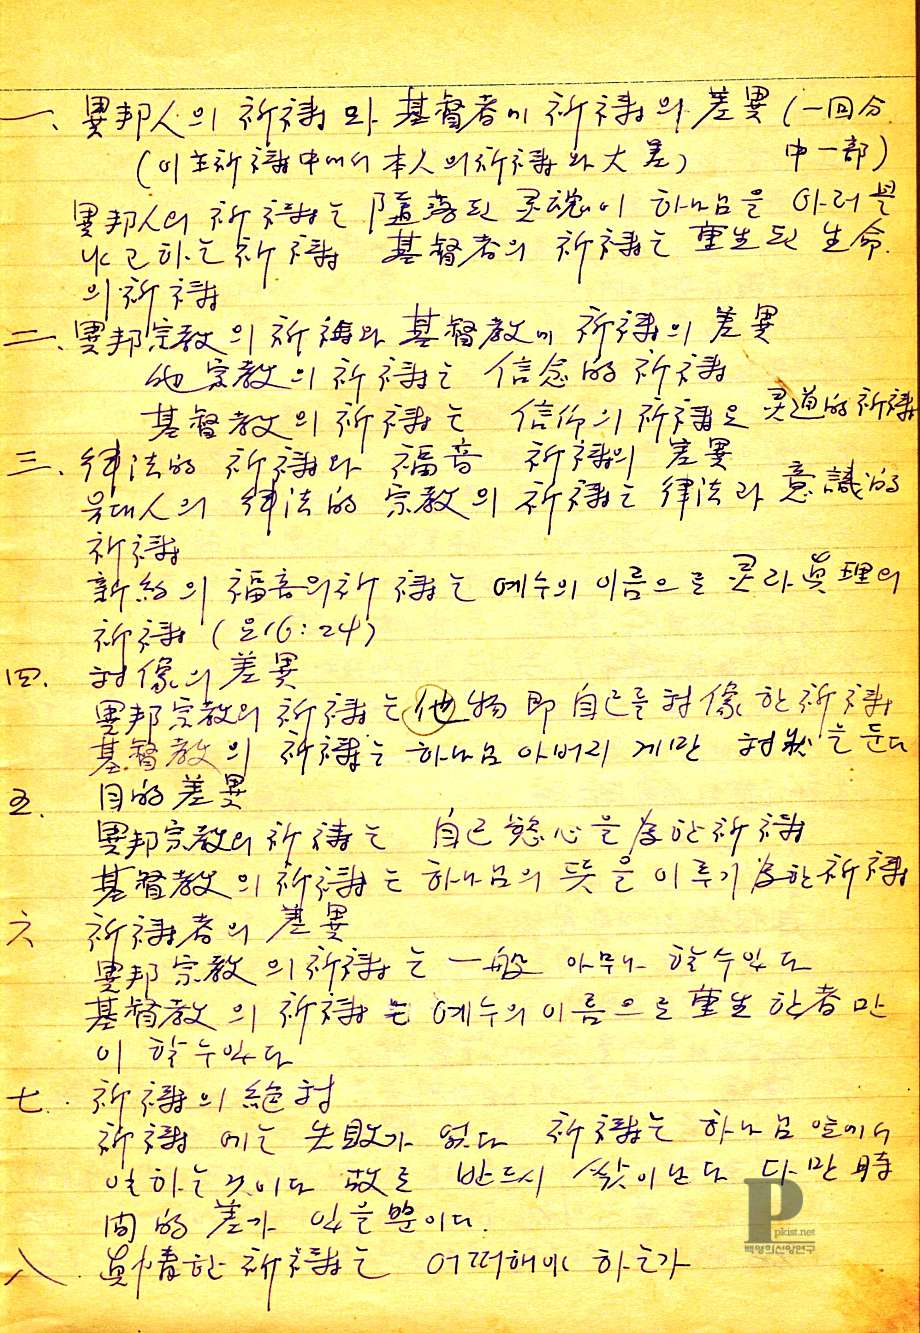 一. 異邦人의 祈禱와 基督者의 祈禱의 差異 (一回分
(이 主祈禱中에서 本人의 祈禱와 大差) 中一部)
異邦人의 祈禱는 墮落된 灵魂이 하나님을
하는 祈禱 基督者의 祈禱는 重生된 生命
의 祈禱
二. 異邦宗教의 祈禱와 基督教의 祈禱의 差異
他宗教의 祈禱는 信念的 祈禱
基督教의 祈禱는 信仰의 祈禱요 灵道的 祈禱
三. 律法的 祈禱와 福音 祈禱의 差異
유대人의 律法的 宗教의 祈禱는 律法과 意識的
祈禱
新約의 福音의 祈禱는 예수의 이름으로 灵과 眞理의
祈禱 (요16:24)
四. 対像의 差異
異邦宗教의 祈禱는 他物 即 自己를 対像한 祈禱
基督教의 祈禱는 하나님 아버지 게만 対狀을 둔다
五. 目的 差異
異邦宗教의 祈禱는 自己 慾心을 为한 祈禱
基督教의 祈禱는 하나님의 뜻을 이루기 为한 祈禱
六 祈禱者의 差異
異邦宗教의 祈禱는 一般 아무나 할 수 있다
基督教의 祈禱는 예수의 이름으로 重生한 者만
이 할 수 있다
七. 祈禱의 絶対
祈禱에는 失敗가 없다 祈禱는 하나님 앞에서
일하는 것이다 故로 반드시 싹이 난다 다만 時
间的 差가 있을 뿐이다.
八. 眞情한 祈禱는 어떠해야 하는가
P
pkist.net
백영희신앙연구